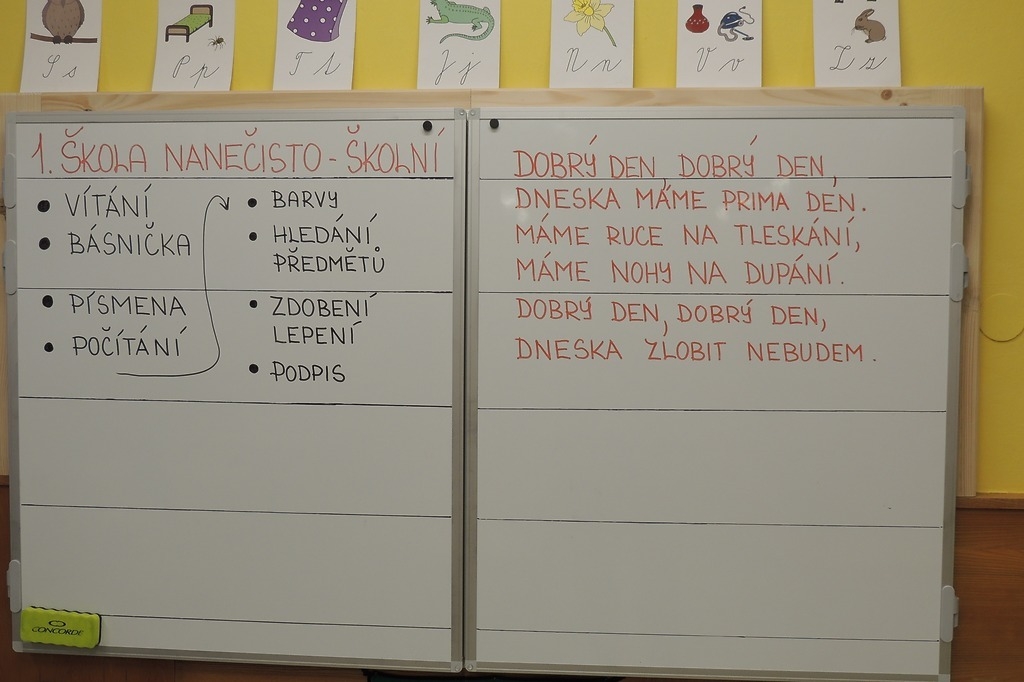 S s
P p
T t
J j
N n
V v
Z z
1. ŠKOLA NANEČISTO - ŠKOLNÍ
• VÍTÁNÍ
• BÁSNIČKA
• PÍSMENA
• POČÍTÁNÍ
• BARVY
• HLEDÁNÍ
PŘEDMĚTŮ
• ZDOBENÍ
LEPENÍ
• PODPIS
DOBRÝ DEN, DOBRÝ DEN,
DNESKA MÁME PRIMA DEN.
MÁME RUCE NA TLESKÁNÍ,
MÁME NOHY NA DUPÁNÍ.
DOBRÝ DEN, DOBRÝ DEN,
DNESKA ZLOBIT NEBUDEM.
CONCORDE